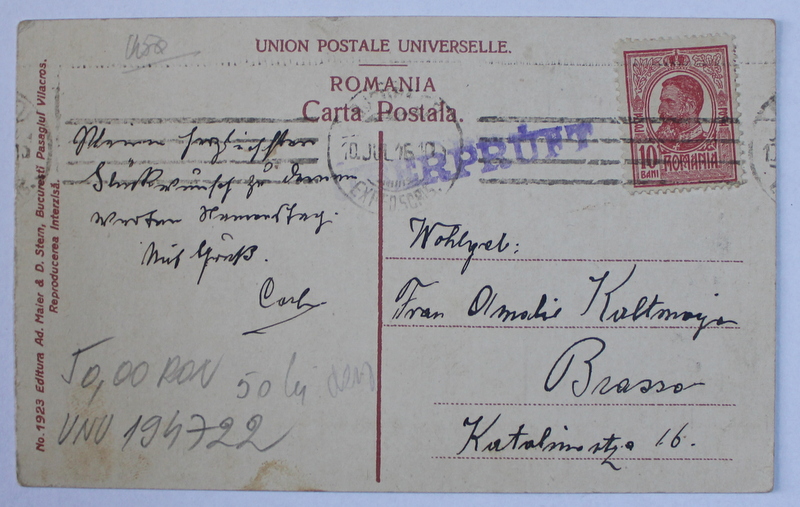 UNION POSTALE UNIVERSELLE.
ROMANIA
Carta Postala.
ÜBERPRÜFT
10. JUL. 16. 10
10
BANI
ROMANIA
Meinen herzlichsten
Glückwunsch zu Deinem
werten Namenstag.
Mit Gruß.
Carl
Wohlgeb:
Frau Amalie
Brasso
16.
50,00 RON
50 lei
VNU 194722
No. 1923 Editura Ad. Maier & D. Stern, Bucuresti Pasagiul Vilacros.
Reproducerea Interzisă.